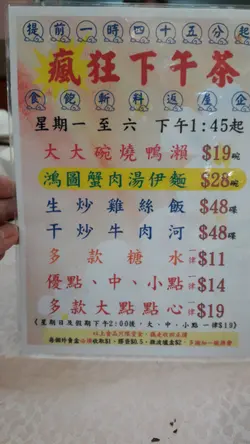 提前一時四十五分起
瘋狂下午茶
食飽新料返屋企
星期一至六 下午1:45起
大大碗燒鴨瀨 $19碗
鴻圖蟹肉湯伊麵 $28碗
生炒雞絲飯 $48碟
干炒牛肉河 $48碟
多款糖水 一律$11
優點、中、小點 一律$14
多款大點點心 一律$19
《星期日及假期下午2:00後，大、中、小點 一律$19》
以上食品只限堂食，